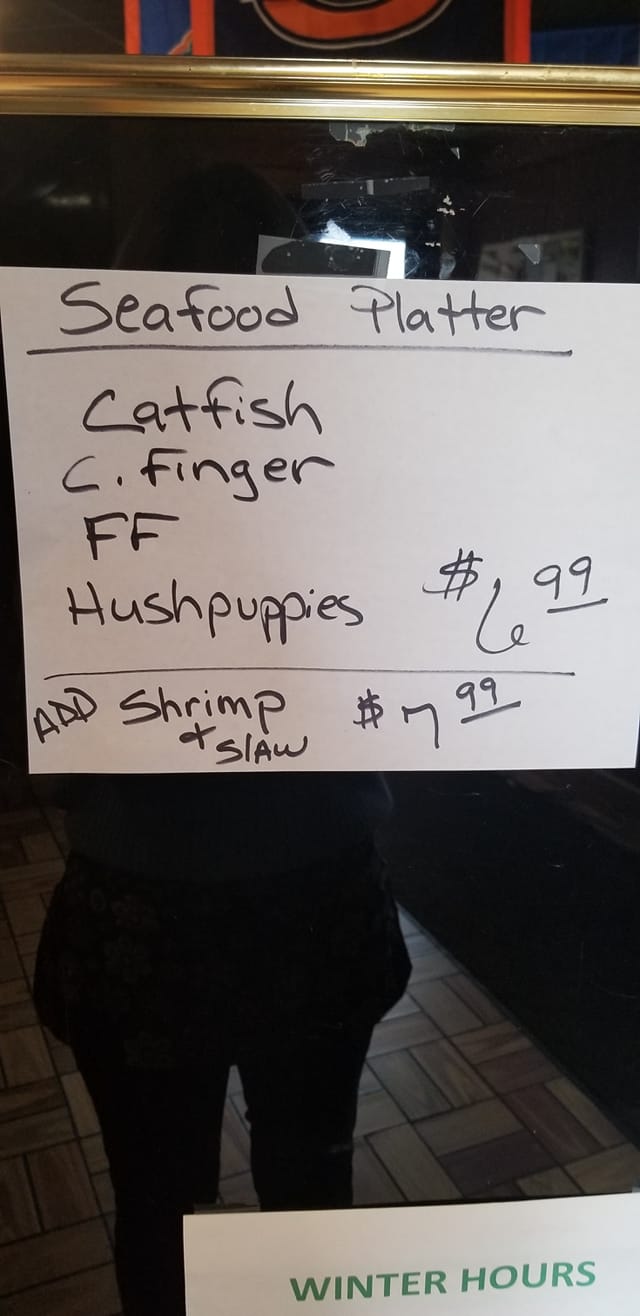 Seafood Platter
Catfish
C. Finger
FF
Hushpuppies $6.99
ADD Shrimp $7.99
+ SLAW
WINTER HOURS